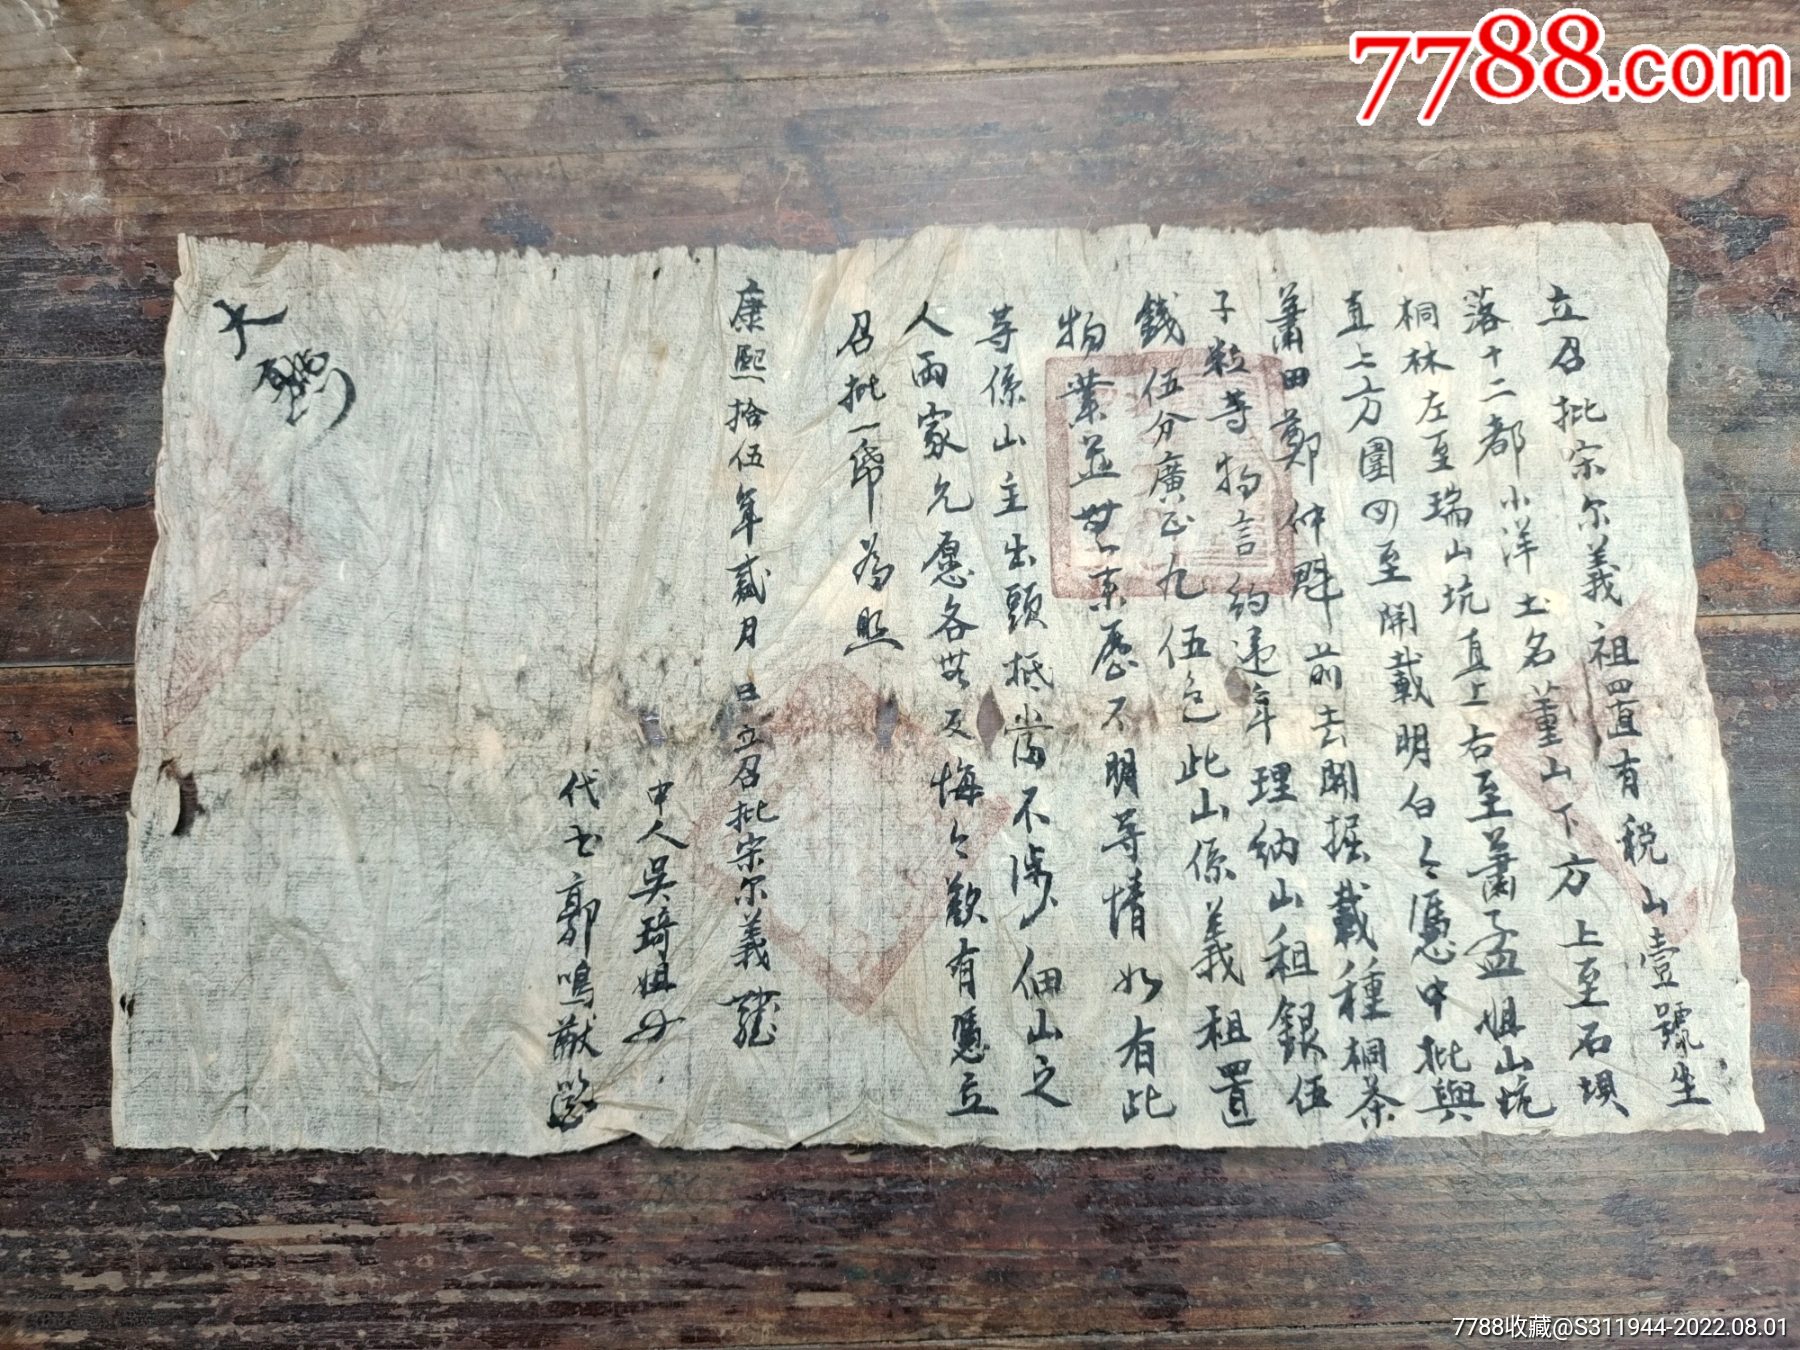 7788.com
立召批宗尔義祖置有税山壹號坐
落十二都小洋土名董山下方上至石垻
桐林左至瑞山坑直上右至蕭孟姐山坑
直上方圍四至開載明白今憑中批與
蕭田鄭仲魁前去開掘栽種桐茶
子粒等物言約遞年理納山租銀伍
錢伍分廣正九伍色此山係義祖置
物業並無来歷不明等情如有此
等係山主出頭抵當不涉佃山之
人兩家允愿各無反悔今欲有憑立
召批一帋為照
康熙拾伍年貳月 日立召批宗尔義
中人吳琦姐
代書郭鳴猷
大
7788收藏@S311944-2022.08.01